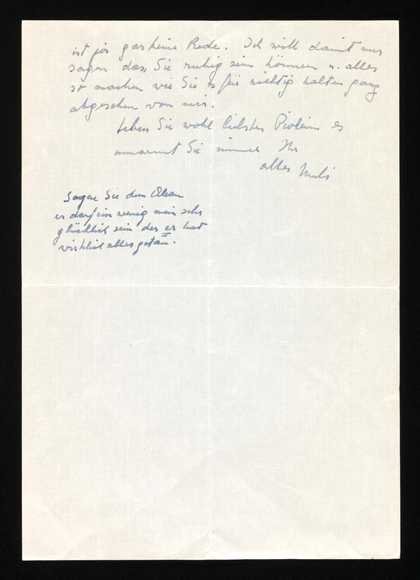 ist ja gar keine Rede. Ich will damit nur
sagen dass Sie ruhig sein können u. alles
so machen wie Sie es für richtig halten ganz
abgesehen von mir.
Leben Sie wohl liebster es
umarmt Sie immer Ihr
alter
Sagen Sie dem
er darf ein wenig sehr
glücklich sein der er hat
wirklich alles getan.